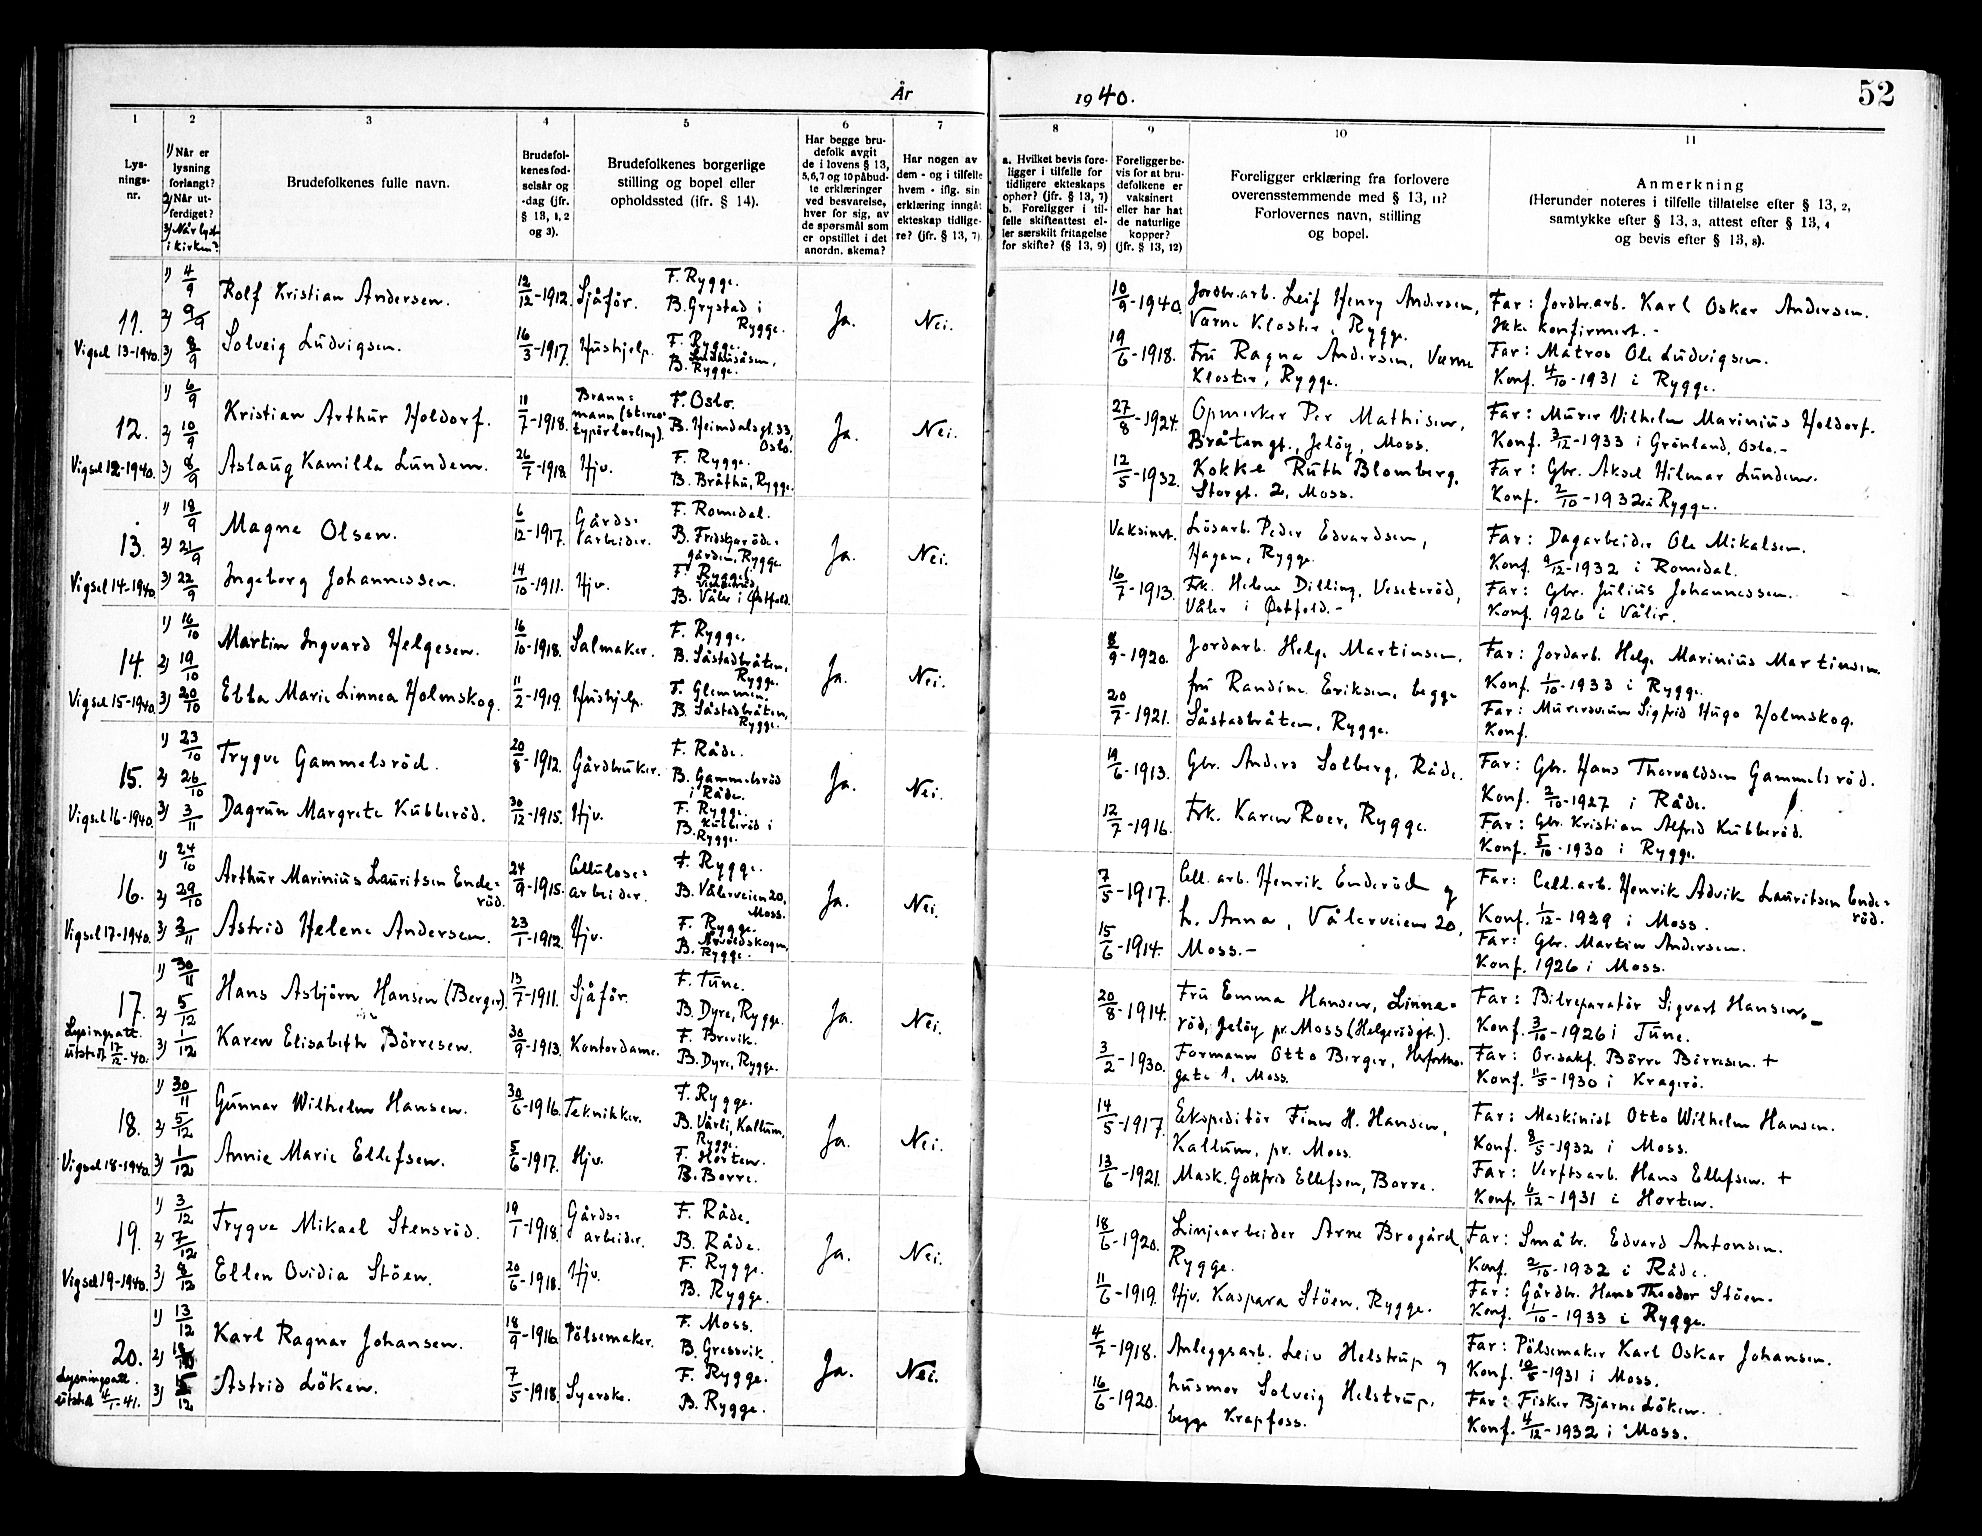 År 1940.
52
1
Lys-
nings-
nr.
2
1) Når er
lysning
forlangt?
2) Når ut-
ferdiget?
3) Når lyst
i kirken?
3
Brudefolkenes fulle navn.
4
Brudefol-
kenes fød-
selsår og
-dag (jfr.
§ 13, 1, 2
og 3).
5
Brudefolkenes borgerlige
stilling og bopel eller
opholdssted (ifr. § 14).
6
Har begge bru-
defolk avgit
de i lovens § 13,
5, 6, 7 og 10 påbud-
te erklæringer
ved besvarelse,
hver for sig, av
de spørsmål som
er opstillet i det
anordn. skema?
7
Har nogen av
dem - og i tilfelle
hvem - iflg. sin
erklæring inngåt
ekteskap tidlige-
re? (jfr. § 13, 7)
8
a. Hvilket bevis fore-
ligger i tilfelle for
tidligere ekteskaps
ophør? (jfr. § 13, 7)
b. Foreligger i til-
felle skifteattest el-
ler særskilt fritagelse
for skifte? (§ 13, 9)
9
Foreligger be-
vis for at bru-
defolkene er
vaksinert
eller har hat
de naturlige
kopper?
(jfr. § 13, 12)
10
Foreligger erklæring fra forlovere
overensstemmende med § 13, 11?
Forlovernes navn, stilling
og bopel.
11
Anmerkning
(Herunder noteres i tilfelle tillatelse efter § 13, 2,
samtykke efter § 13, 3, attest efter § 13, 4
og bevis efter § 13, 8).
11.
Vigsel 13-1940.
1) 4/9
2) 9/9
3) 8/9
Rolf Kristian Andersen.
Solveig Ludvigsen.
12/12-1912.
16/3-1917.
Sjåfør.
F. Rygge.
B. Grystad i
Rygge.
Hushjelp.
F. Rygge.
B.
Rygge.
Ja.
Nei.
10/9-1940.
19/6-1918.
Jordbr.arb. Leif Henry Andersen,
Værne Kloster, Rygge.
Fru Ragna Andersen, Værne
Kloster, Rygge.
Far: Jordbr.arb. Karl Oskar Andersen.
Ikke konfirmert.-
Far: Matros Ole Ludvigsen.
Konf. 4/10-1931 i Rygge.
12.
Vigsel 12-1940.
1) 6/9
2) 10/9
3) 8/9
Kristian Arthur Holdorf.
Aslaug Kamilla Lundem.
11/7-1918.
26/7-1918.
Brann-
mann (stereo-
typørlærling).
F. Oslo.
B. Heimdalsgt. 33,
Oslo.
Hjv.
F. Rygge.
B. Bråthu, Rygge.
Ja.
Nei.
27/8-1924.
12/5-1932.
Opmerker Per Mathisen,
Bråtengt., Jeløy, Moss.
Kokke Ruth Blomberg,
Storgt. 2, Moss.
Far: Murer Vilhelm Marinius Holdorf.
Konf. 3/12-1933 i Grönland, Oslo.-
Far: Gbr. Aksel Hilmar Lundem.
Konf. 2/10-1932 i Rygge.
13.
Vigsel 14-1940
1) 18/9
2) 21/9
3) 22/9
Magne Olsen.
Ingeborg Johannessen.
6/12-1917.
14/10-1911.
Gårds-
arbeider.
F. Romedal.
B. Fridskjeröd-
gården, Rygge
Hjv.
F. Rygge
B. Våler i Østfold.
Ja.
Nei.
Vaksinert.
16/7-1913.
Løsarb. Peder Edvardsen,
Hagan, Rygge.
Frk. Helene Dilling, Veseteröd,
Våler i Østfold.-
Far: Dagarbeider Ole Mikalsen.
Konf. 9/12-1932 i Romedal.
Far: Gbr. Julius Johannessen.
Konf. 1926 i Våler.
14.
Vigsel 15-1940.
1) 16/10
2) 19/10
3) 20/10
Martin Ingvard Helgesen.
Ebba Marie Linnea Holmskog.
16/10-1918.
11/2-1919.
Salmaker.
F. Rygge.
B. Såstadbråten,
Rygge.
Hushjelp.
F. Glemmen.
B. Såstadbråten,
Rygge.
Ja.
Nei.
8/9-1920.
20/7-1921.
Jordarb. Helge Martinsen,
fru Randine Eriksen, begge
Såstadbråten, Rygge.
Far: Jordarb. Helge Marinius Martinsen.
Konf. 1/10-1933 i Rygge.
Far: Murersvenn Sigfrid Hugo Holmskog.
Konf.
15.
Vigsel 16-1940.
1) 23/10
2) 26/10
3) 3/11
Trygve Gammelsröd.
Dagrun Margrete Kubberöd.
20/8-1912.
30/12-1915.
Gårdbruker.
F. Råde.
B. Gammelsröd
i Råde.
Hjv.
F. Rygge.
B. Kubberöd i
Rygge.
Ja.
Nei.
19/6-1913.
12/7-1916.
Gbr. Anders Solberg, Råde.
Frk. Karen Roer, Rygge.
Far: Gbr. Hans Thorvaldsen Gammelsröd.
Konf. 2/10-1927 i Råde.
Far: Gbr. Kristian Alfrid Kubberöd.
Konf. 5/10-1930 i Rygge.
16.
Vigsel 17-1940.
1) 24/10
2) 29/10
3) 3/11
Arthur Marinius Lauritsen Ende-
röd.
Astrid Helene Andersen.
24/9-1915.
23/1-1912.
Cellulose-
arbeider.
F. Rygge.
B. Vålerveien 20,
Moss.
Hjv.
F. Rygge.
B.
Rygge.
Ja.
Nei.
7/5-1917.
15/6-1914.
Cell. arb. Henrik Enderöd og
h. Anna, Vålerveien 20,
Moss.-
Far: Cell.arb. Henrik Advik Lauritsen Ende-
röd.
Konf. 1/12-1929 i Moss.
Far: Gbr. Martin Andersen.
Konf. 1926 i Moss.
17.
Lysingsatt.
utstedt 17/12-40.
1) 30/11
2) 5/12
3) 1/12
Hans Asbjörn Hansen (Berger).
Karen Elisabeth Börresen.
13/7-1911.
30/9-1913.
Sjåfør.
F. Tune.
B. Dyre, Rygge.
Kontordame.
F. Brevik.
B. Dyre, Rygge.
Ja.
Nei.
20/8-1914.
3/2-1930.
Fru Emma Hansen, Linne-
röd, Jeløy pr. Moss (Helgerödgt.).
Formann Otto Berger,
gate 1, Moss.
Far: Bilreparatör Sigvart Hansen.-
Konf. 3/10-1926 i Tune.
Far: Börre Börresen. +
Konf. 11/5-1930 i Kragerö.
18.
Vigsel 18-1940.
1) 30/11
2) 5/12
3) 1/12
Gunnar Wilhelm Hansen.
Annie Marie Ellefsen.
30/6-1916.
5/6-1917.
Tekniker.
F. Rygge.
B. Vårli, Kallum,
Rygge.
Hjv.
F. Horten.
B. Borre.
Ja.
Nei.
14/5-1917.
13/6-1921.
Ekspeditör Finn H. Hansen,
Kallum, pr. Moss.
Mask. Gottfrid Ellefsen, Borre.
Far: Maskinist Otto Wilhelm Hansen.
Konf. 8/5-1932 i Moss.
Far: Verftsarb. Hans Ellefsen. +
Konf. 6/12-1931 i Horten.
19.
Vigsel 19-1940.
1) 3/12
2) 7/12
3) 8/12
Trygve Mikael Stensröd.
Ellen Ovidia Stöen.
19/1-1918.
20/6-1918.
Gårds-
arbeider.
F. Råde.
B. Råde.
Hjv.
F. Rygge.
B. Rygge.
Ja.
Nei.
18/6-1920.
11/6-1919.
Linjearbeider Arne Brogård,
Rygge.
Hjv. Kaspara Stöen, Rygge.
Far: Småbr. Edvard Antonsen.
Konf. 2/10-1932 i Råde.
Far: Gårdbr. Hans Theodor Stöen.
Konf. 1/10-1933 i Rygge.
20.
Lysningsatt.
utsted 4/1-41.
1) 13/12
2)
3) /12
Karl Ragnar Johansen.
Astrid Löken.
18/9-1916.
7/5-1918.
Pölsemaker.
F. Moss.
B. Gressvik.
Syerske.
F. Rygge.
B. Rygge.
Ja.
Nei.
4/7-1918.
16/6-1920.
Anleggsarb. Leiv Helstrup og
husmor Solveig Helstrup,
begge Krapfoss.
Far: Pölsemaker Karl Oskar Johansen.
Konf. 10/5-1931 i Moss.
Far: Fisker Bjarne Löken.
Konf. 4/12-1932 i Moss.